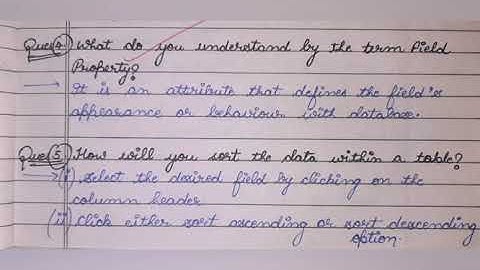 Ques(4) What do you understand by the term Field
Property?
→ It is an attribute that defines the field's
appearance or behaviour with database.
Ques(5) How will you sort the data within a table?
→(i) select the desired field by clicking on the
column header
(ii) Click either sort ascending or sort descending
option.